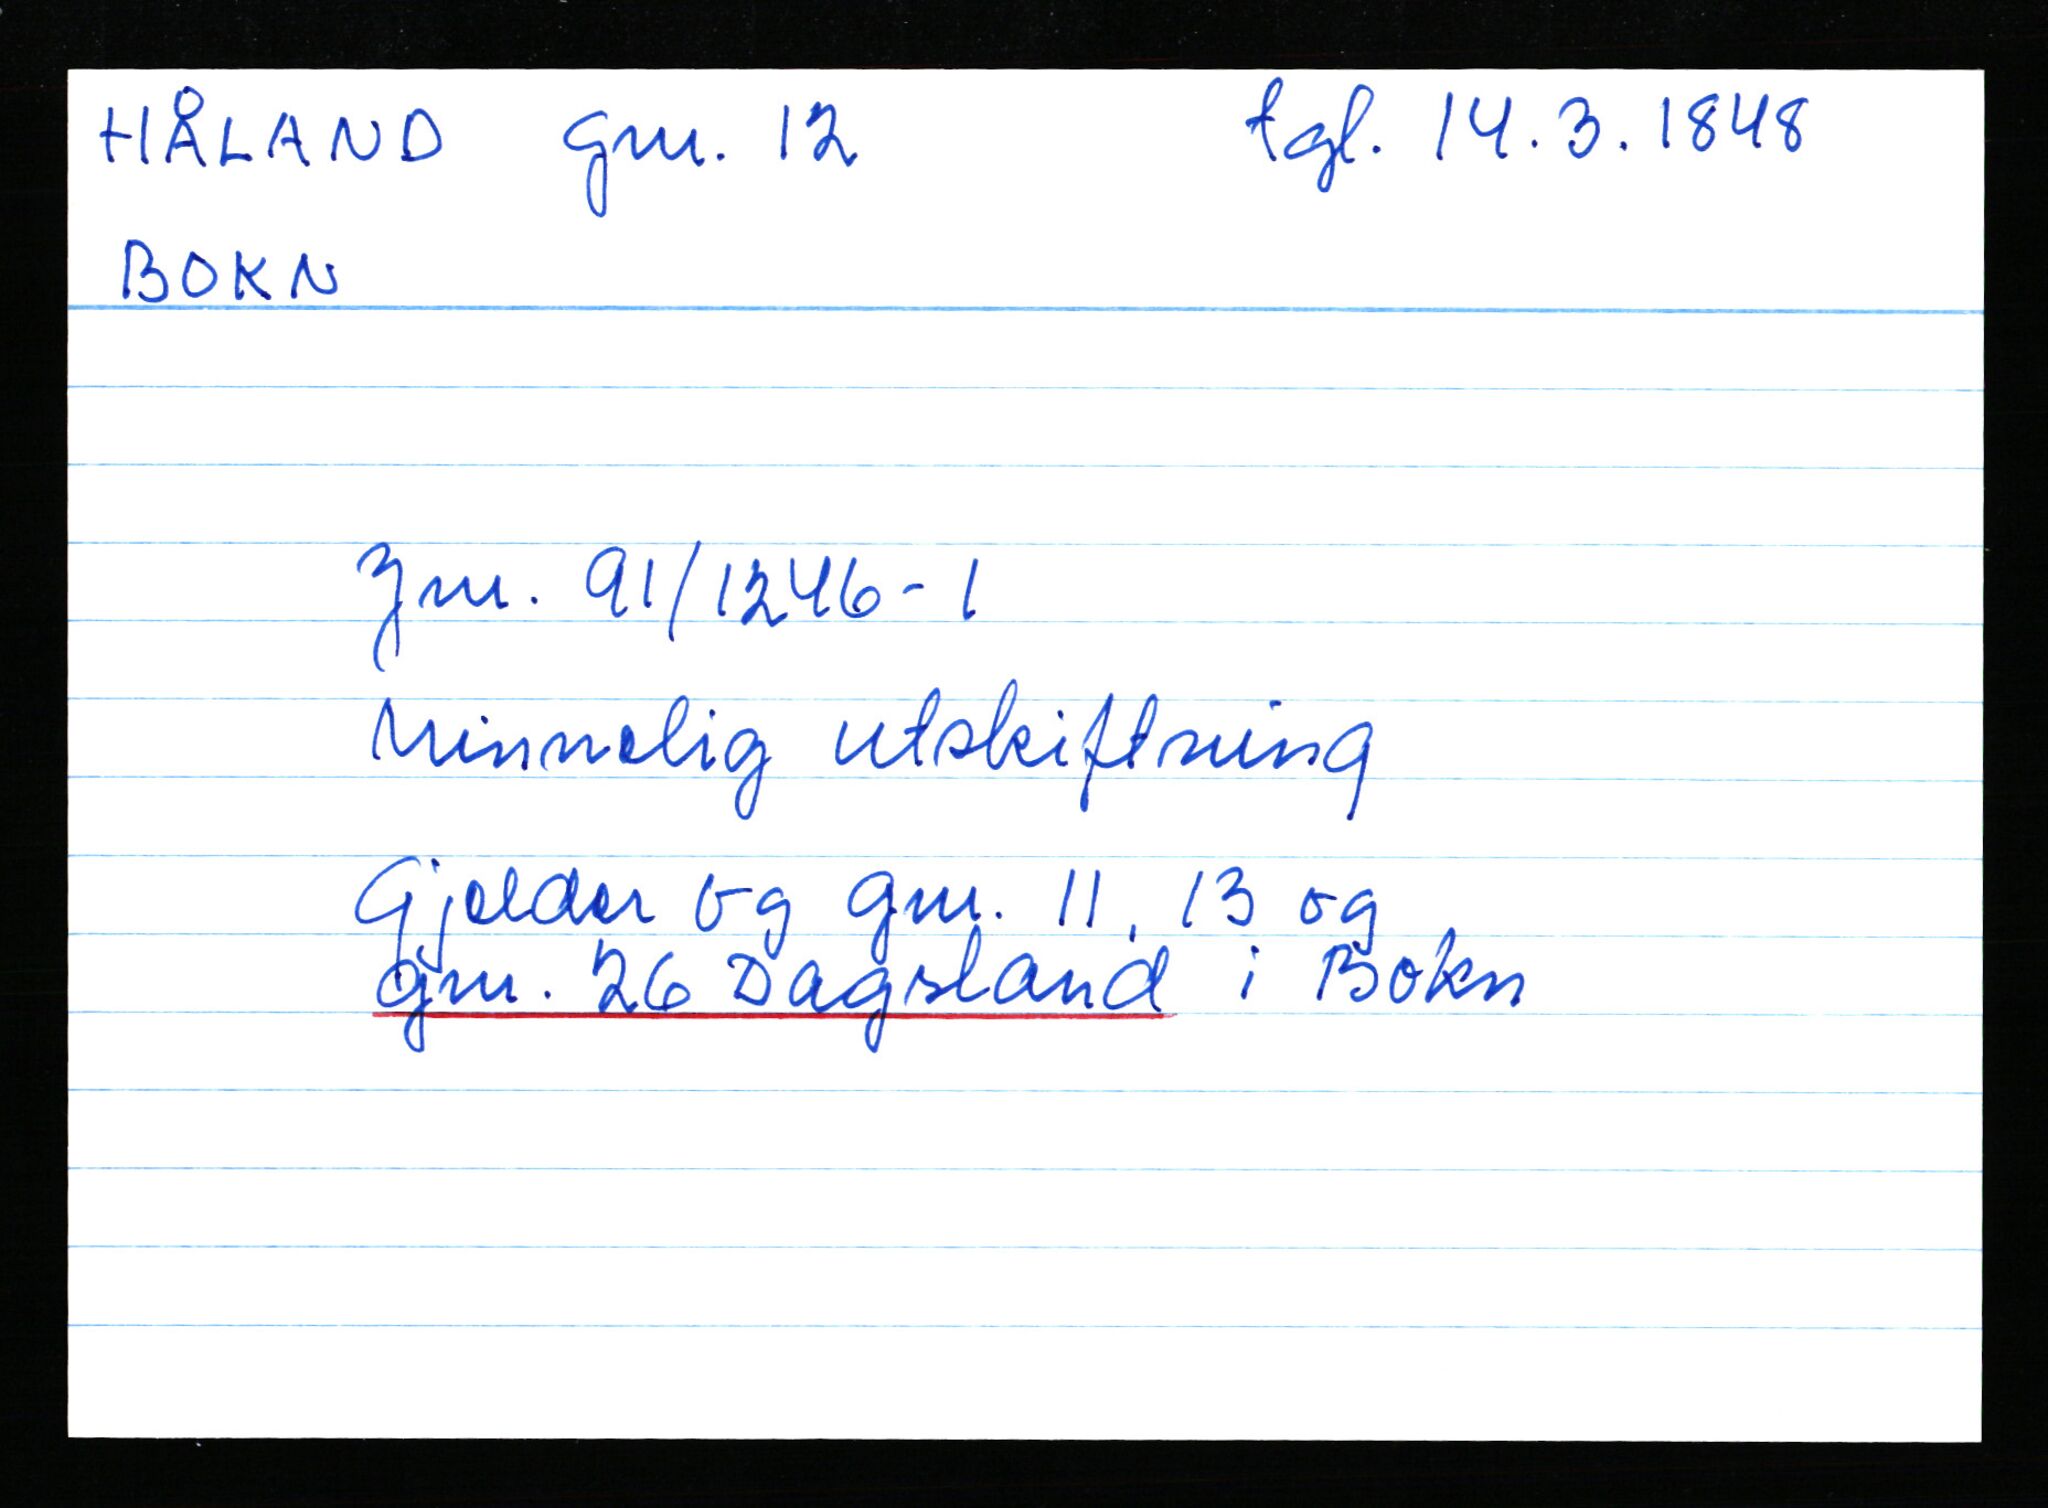 HÅLAND gnr. 12 tgl. 14.3.1848
BOKN
Jnr. 91/1246-1
Minnelig utskiftning
Gjelder og gnr. 11, 13 og
gnr. 26 Dagsland i Bokn